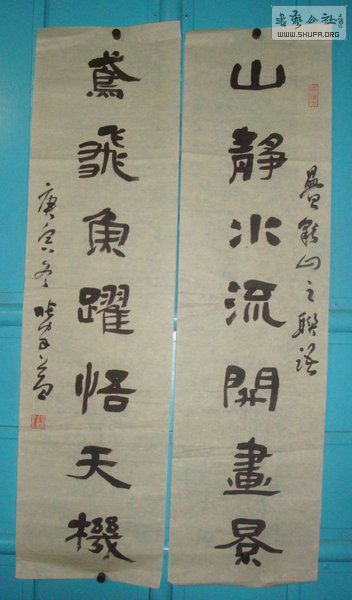 山靜水流開畫景
鳶飛魚躍悟天機
之聯語
庚寅冬
书艺公社
WWW.SHUFA.ORG